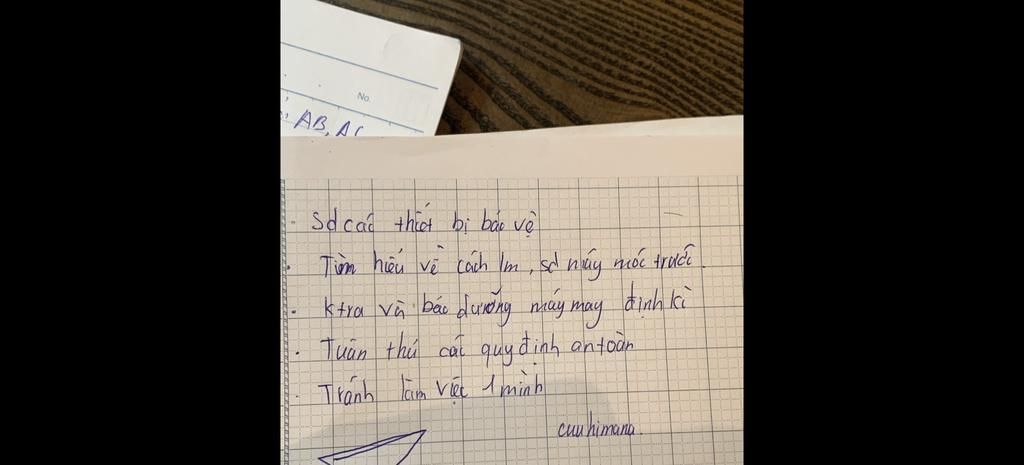 No.
AB, AC
- Sd các thiết bị bảo vệ
. Tìm hiểu về cách lm, sd máy móc trước.
. Ktra và bảo dưỡng máy may định kì
. Tuân thủ các quy định an toàn
. Tránh làm việc 1 mình
cuuhimana.